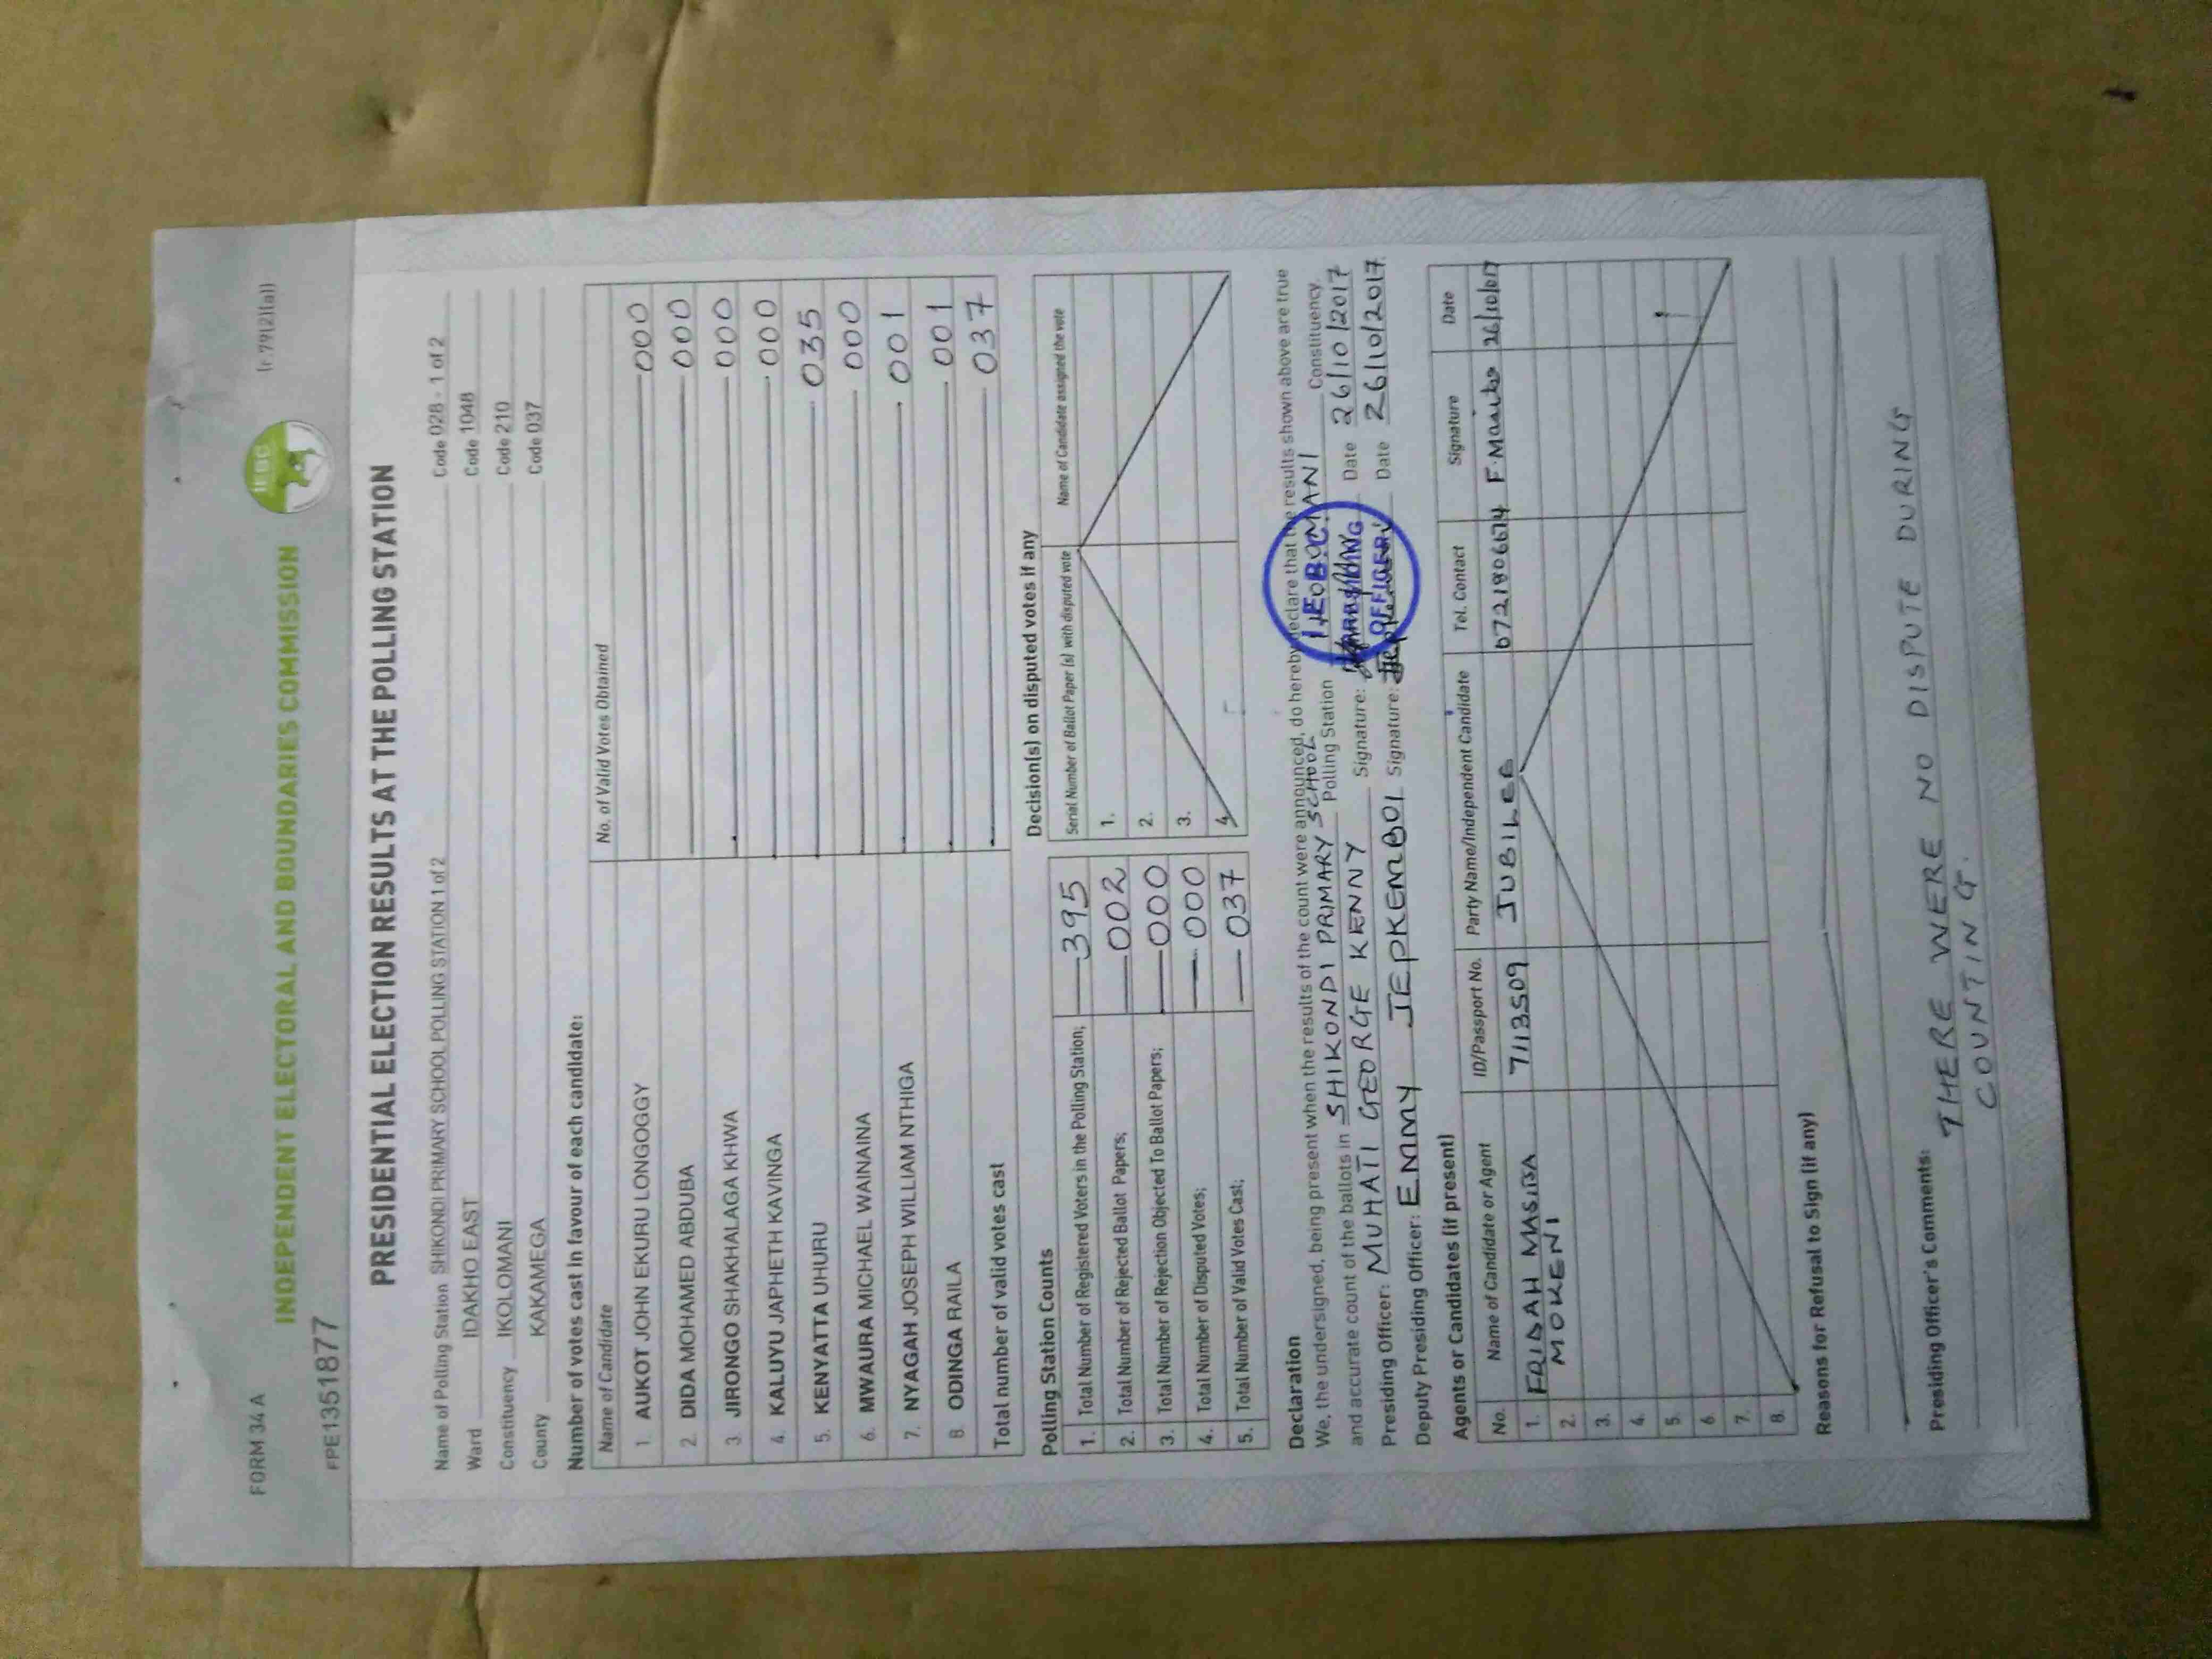 FORM 34 A
INDEPENDENT ELECTORAL AND BOUNDARIES COMMISSION
IEBC
(r.79(2)(a))
FPE1351877
PRESIDENTIAL ELECTION RESULTS AT THE POLLING STATION
Name of Polling Station SHIKONDI PRIMARY SCHOOL POLLING STATION 1 of 2 Code 028 - 1 of 2
Ward IDAKHO EAST Code 1048
Constituency IKOLOMANI Code 210
County KAKAMEGA Code 037
Number of votes cast in favour of each candidate:
Name of Candidate No. of Valid Votes Obtained
1. AUKOT JOHN EKURU LONGOGGY 000
2. DIDA MOHAMED ABDUBA 000
3. JIRONGO SHAKHALAGA KHWA 000
4. KALUYU JAPHETH KAVINGA 000
5. KENYATTA UHURU 035
6. MWAURA MICHAEL WAINAINA 000
7. NYAGAH JOSEPH WILLIAM NTHIGA 001
8. ODINGA RAILA 001
Total number of valid votes cast 037
Polling Station Counts
1. Total Number of Registered Voters in the Polling Station; 395
2. Total Number of Rejected Ballot Papers; 002
3. Total Number of Rejection Objected To Ballot Papers; 000
4. Total Number of Disputed Votes; 000
5. Total Number of Valid Votes Cast; 037
Decision(s) on disputed votes if any
Serial Number of Ballot Paper (s) with disputed vote Name of Candidate assigned the vote
1.
2.
3.
4.
Declaration
We, the undersigned, being present when the results of the count were announced, do hereby declare that the results shown above are true
and accurate count of the ballots in SHIKONDI PRIMARY SCHOOL Polling Station Constituency.
Presiding Officer: MUHATI GEORGE KENNY Signature: Date 26/10/2017
Deputy Presiding Officer: EMMY JEPKEMBOI Signature: Date 26/10/2017
I.E.B.C.
OFFICER
Agents or Candidates (if present)
No. Name of Candidate or Agent ID/Passport No. Party Name/Independent Candidate Tel. Contact Signature Date
1. FRIDAH MASIBA 7113509 JUBILEE 0721806674 26/10/017
2. MOKENI
3.
4.
5.
6.
7.
8.
Reasons for Refusal to Sign (if any)
Presiding Officer's Comments:
THERE WERE NO DISPUTE DURING
COUNTING.